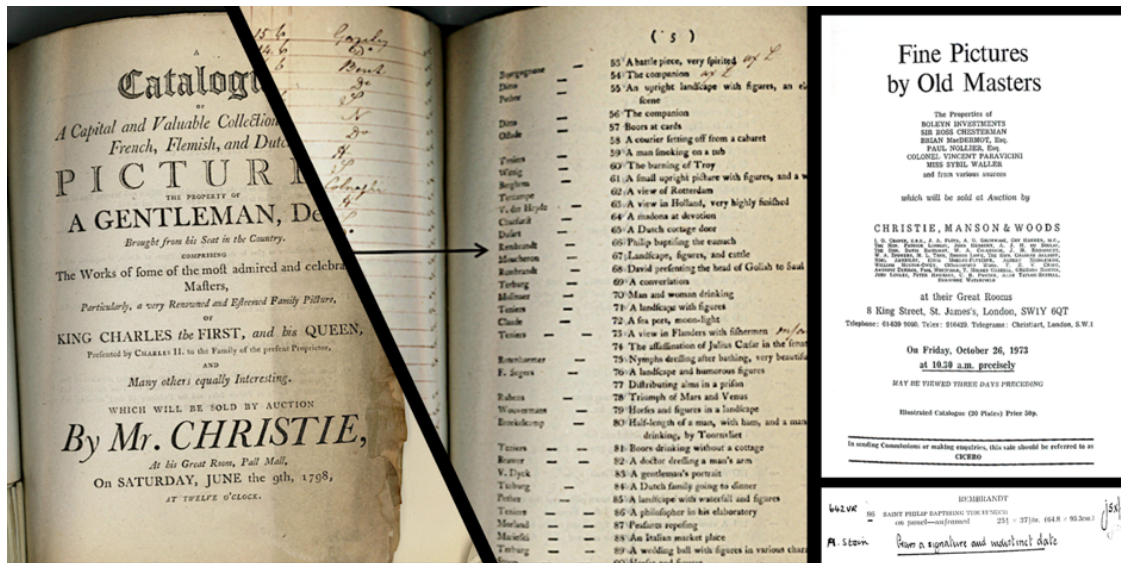 A
Catalog
OF
A Capital and Valuable Collection
French, Flemish, and Dutc
PICTUR
THE PROPERTY OF
A GENTLEMAN, De
Brought from his Seat in the Country.
COMPRISING
The Works of some of the most admired and celebra
Masters,
Particularly, a very Renowned and Esteemed Family Picture,
OF
KING CHARLES the FIRST, and his QUEEN,
Presented by CHARLES II. to the Family of the present Proprietor,
AND
Many others equally Interesting.
WHICH WILL BE SOLD BY AUCTION
By Mr. CHRISTIE,
At his Great Room, Pall Mall,
On SATURDAY, JUNE the 9th, 1798,
AT TWELVE O'CLOCK.
( 5 )
Bourgognone — 53 A battle piece, very spirited
Ditto — 54 The companion
Pether — 55 An upright landscape with figures, an el
scene
Ditto — 56 The companion
Ostade — 57 Boors at cards
58 A courier setting off from a cabaret
Teniers — 59 A man smoking on a tub
— 60 The burning of Troy
Berghem — 61 A small upright picture with figures, and a w
— 62 A view of Rotterdam
V. der Heyde — 63 A view in Holland, very highly finished
— 64 A madona at devotion
Dusart — 65 A Dutch cottage door
Rembrandt — 66 Philip baptising the eunuch
Moucheron — 67 Landscape, figures, and cattle
Rembrandt — 68 David presenting the head of Goliah to Saul
Terburg — 69 A conversation
Molinaer — 70 Man and woman drinking
Teniers — 71 A landscape with figures
Claude — 72 A sea port, moon-light
Teniers — 73 A view in Flanders with fishermen
74 The assassination of Julius Cæsar in the senat
Rotenhamer — 75 Nymphs dressing after bathing, very beautifu
F. Segers — 76 A landscape and humorous figures
77 Distributing alms in a prison
Rubens — 78 Triumph of Mars and Venus
Wouvermans — 79 Horses and figures in a landscape
Breckelkamp — 80 Half-length of a man, with ham, and a man
drinking, by Toornvliet
Teniers — 81 Boors drinking without a cottage
Brawer — 82 A doctor dressing a man's arm
V. Dyck — 83 A gentleman's portrait
Terburg — 84 A Dutch family going to dinner
Pether — 85 A landscape with waterfall and figures
Teniers — 86 A philosopher in his elaboratory
Morland — 87 Peasants reposing
Marieski — 88 An Italian market place
Terburg — 89 A wedding ball with figures in various char
Fine Pictures
by Old Masters
The Properties of
BOLEYN INVESTMENTS
SIR ROSS CHESTERMAN
BRIAN MacDERMOT, Esq.
PAUL NOLLIER, Esq.
COLONEL VINCENT PARAVICINI
MISS SYBIL WALLER
and from various sources
which will be sold at Auction by
CHRISTIE, MANSON & WOODS
at their Great Rooms
8 King Street, St. James's, London, SW1Y 6QT
Telephone: 01-839 9060. Telex: 916429. Telegrams: Christiart, London, S.W.1
On Friday, October 26, 1973
at 10.30 a.m. precisely
MAY BE VIEWED THREE DAYS PRECEDING
Illustrated Catalogue (20 Plates) Price 50p.
In sending Commissions or making enquiries, this sale should be referred to as
CICERO
REMBRANDT
642VR 86 SAINT PHILIP BAPTISING THE EUNUCH
on panel—unframed 25½ × 37½in. (64.8 × 95.3cm.)
A. Stein Bears a signature and indistinct date